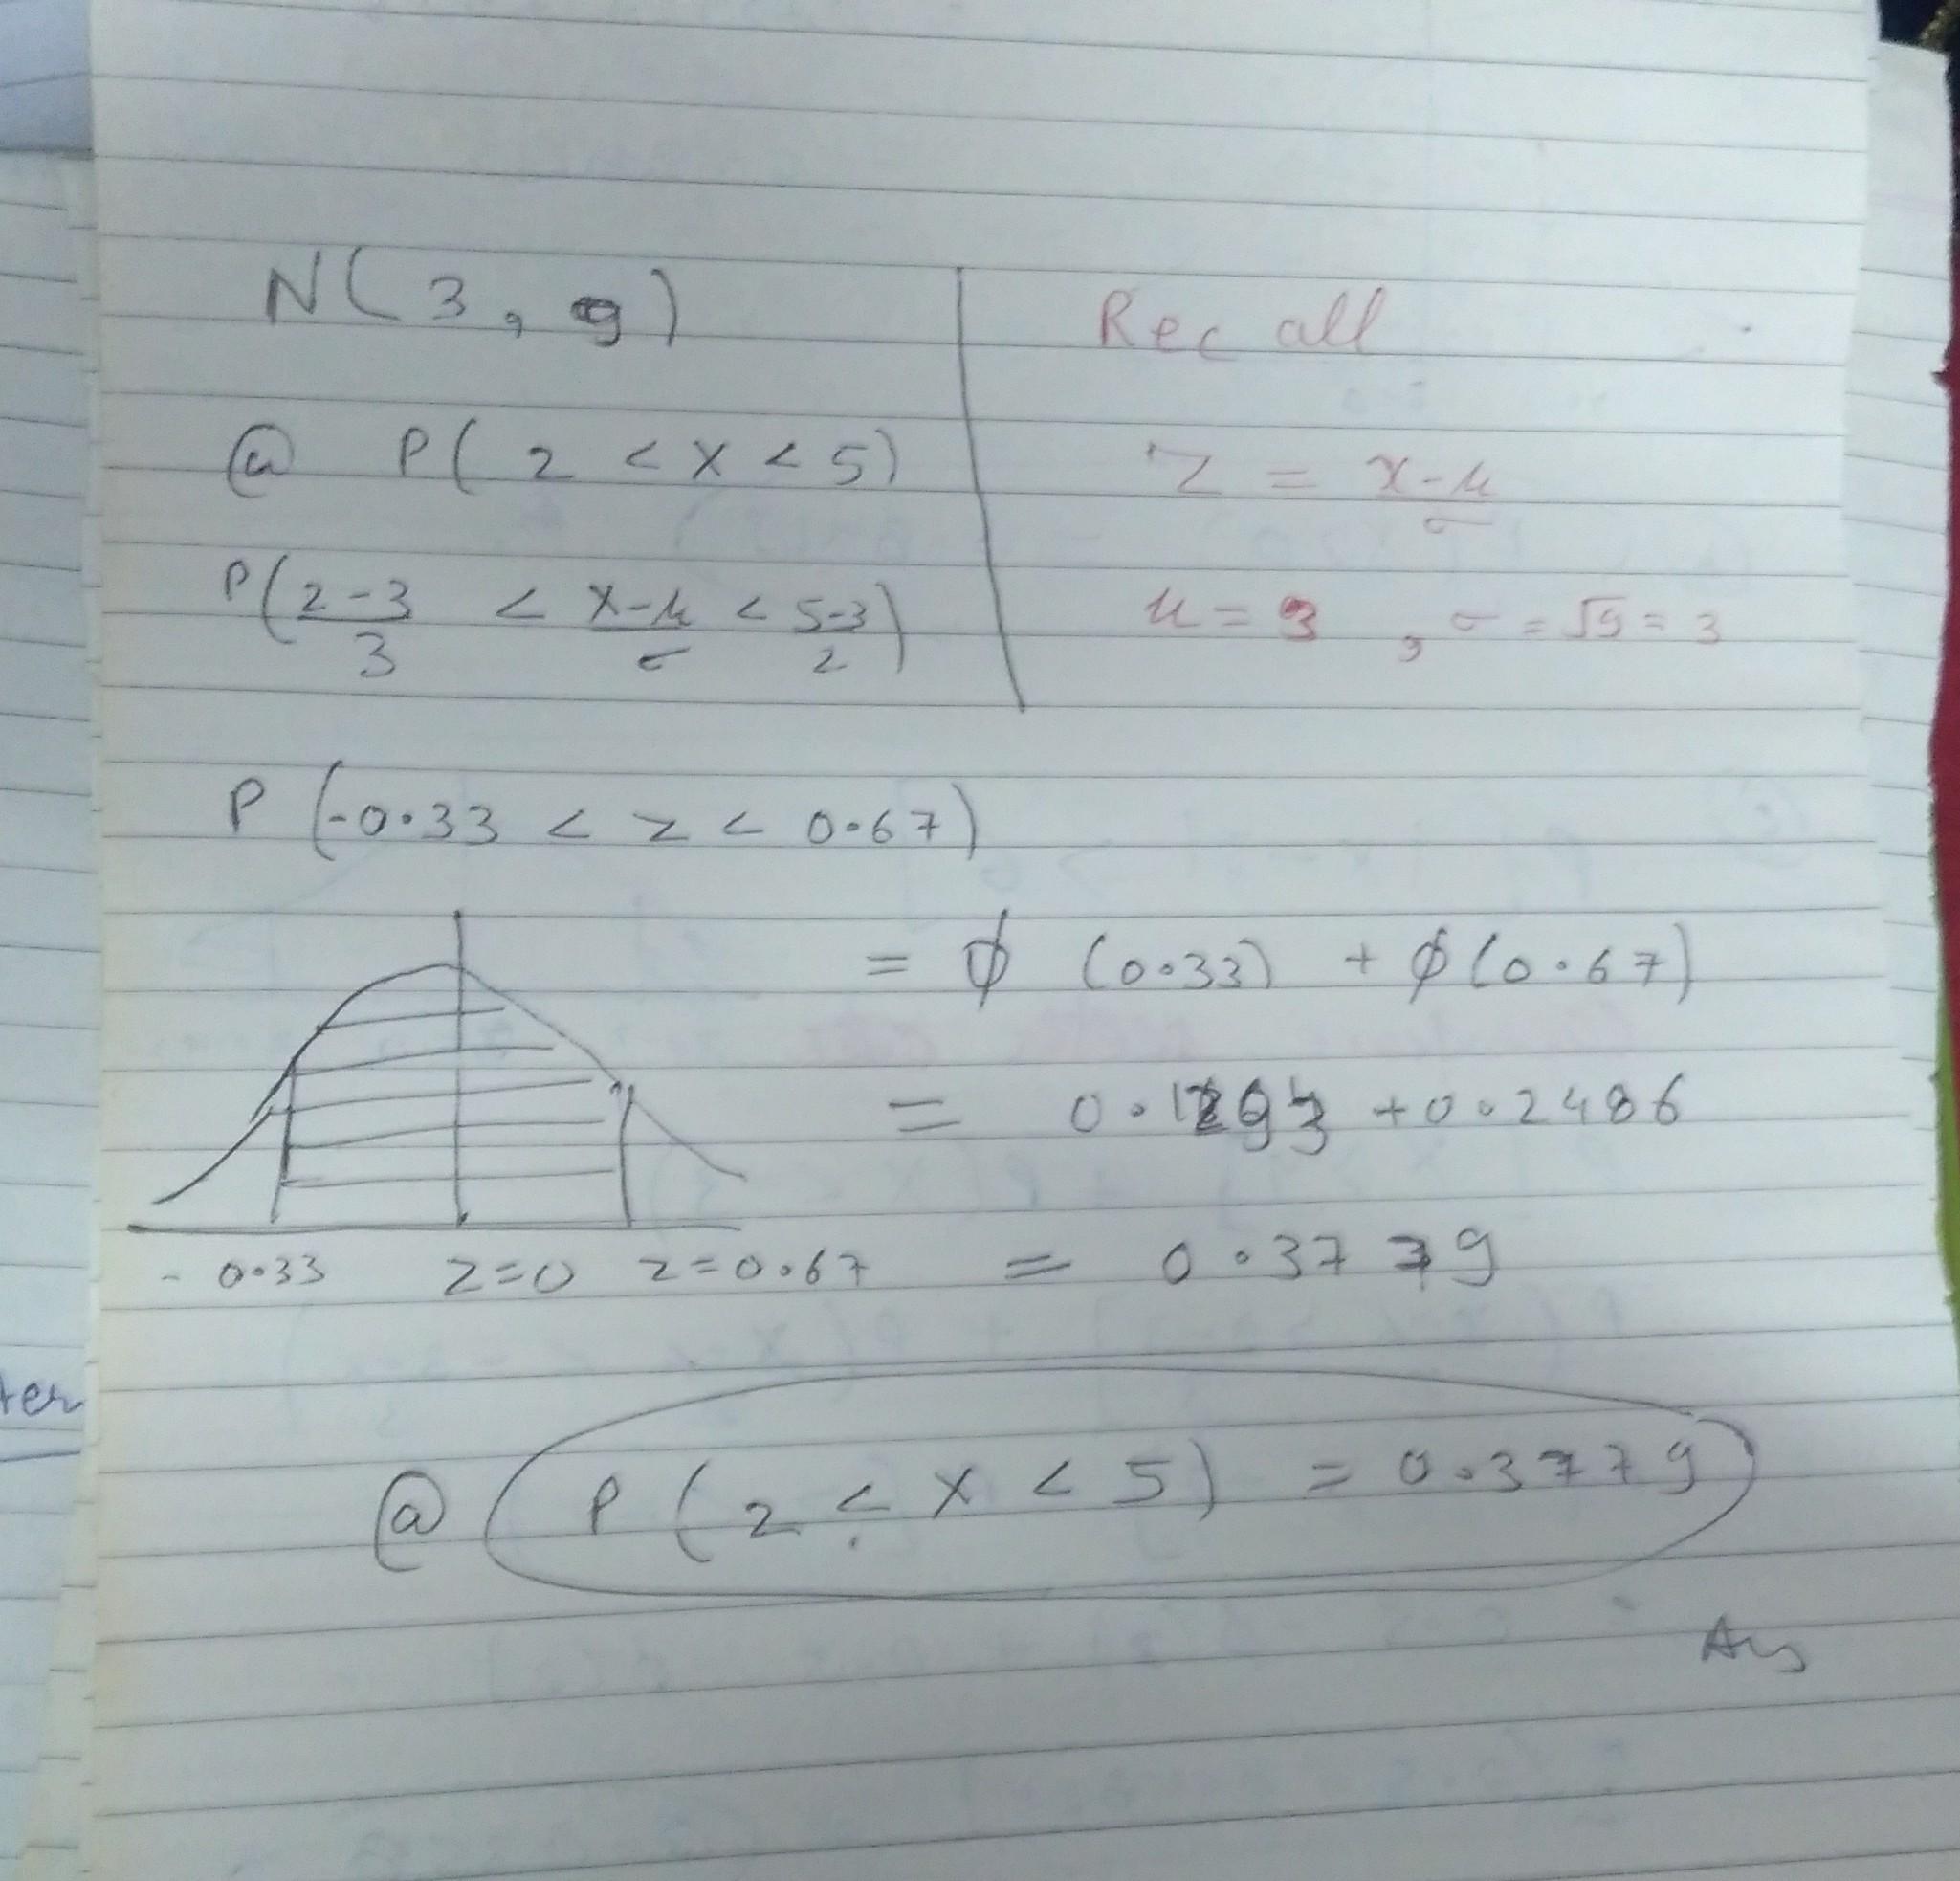 N(3, 9)
Recall
(a) P(2 < X < 5)
Z = x-μ/σ
P(2-3/3 < X-μ/σ < 5-3/2)
μ = 3, σ = √9 = 3
P(-0.33 < z < 0.67)
= ϕ (0.33) + ϕ(0.67)
= 0.1293 + 0.2486
- 0.33 Z=0 z=0.67
= 0.3779
(a) P(2 < X < 5) = 0.3779
Ans
ter